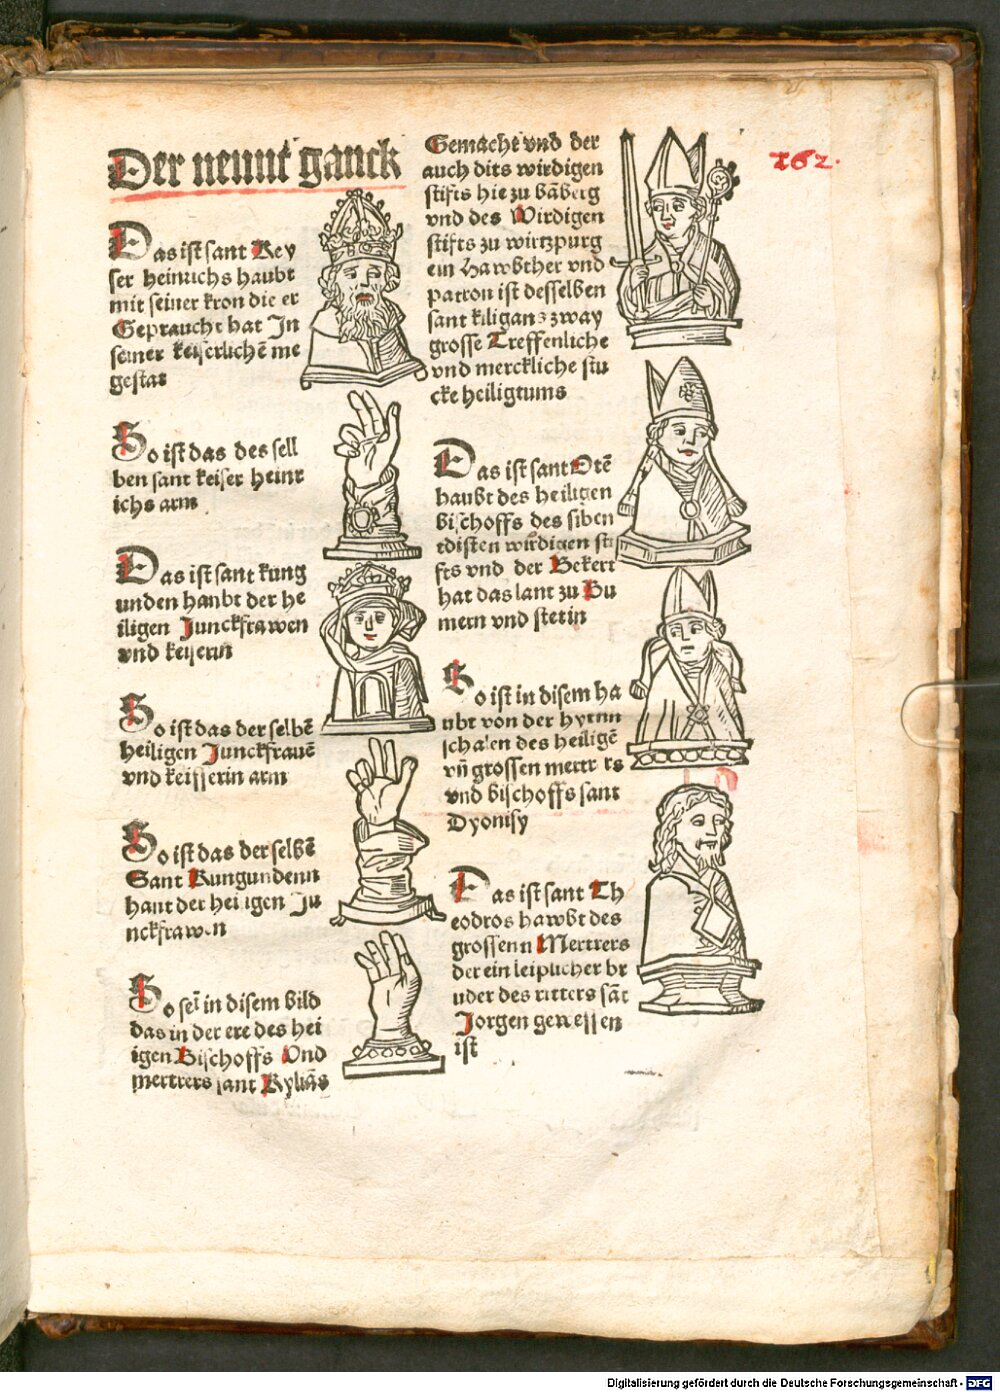 Der neunt ganck
Das ist sant Key
ser heinrichs haubt
mit seiner kron die er
Gepraucht hat Jn
seiner keiserlichē me
gestat
So ist das des sell
ben sant keiser heinr
ichs arm
Das ist sant kung
unden haubt der he
iligen Junckfrawen
vnd keiserin
So ist das der selbē
heiligen Junckfrauē
vnd keisserin arm
So ist das der selbē
Sant Kungundenn
hant der heiligen Ju
nckfrawen
So sei in disem bild
das in der ere des hei
igen Bischoffs Vnd
mertrers sant Kyliās
Gemacht vnd der
auch dits wirdigen
stifts hie zu bāberg
vnd des Wirdigen
stifts zu wirtzpurg
ein Hawbther vnd
patron ist desselben
sant kiligans zway
grosse Treffenliche
vnd merckliche stu
cke heiligtums
Das ist sant Otē
haubt des heiligen
bischoffs des siben
tdisten wirdigen sti
fts vnd der Bekert
hat das lant zu Bu
mern vnd stetin
So ist in disem ha
ubt von der hyrnn
schalen des heiligē
vn̄ grossen mertrers
vnd bischoffs sant
Dyonisy
Das ist sant Th
eodros hawbt des
grossenn Mertrers
der ein leiplicher br
uder des ritters sāt
Jorgen gewessen
ist
162.
Digitalisierung gefördert durch die Deutsche Forschungsgemeinschaft - DFG